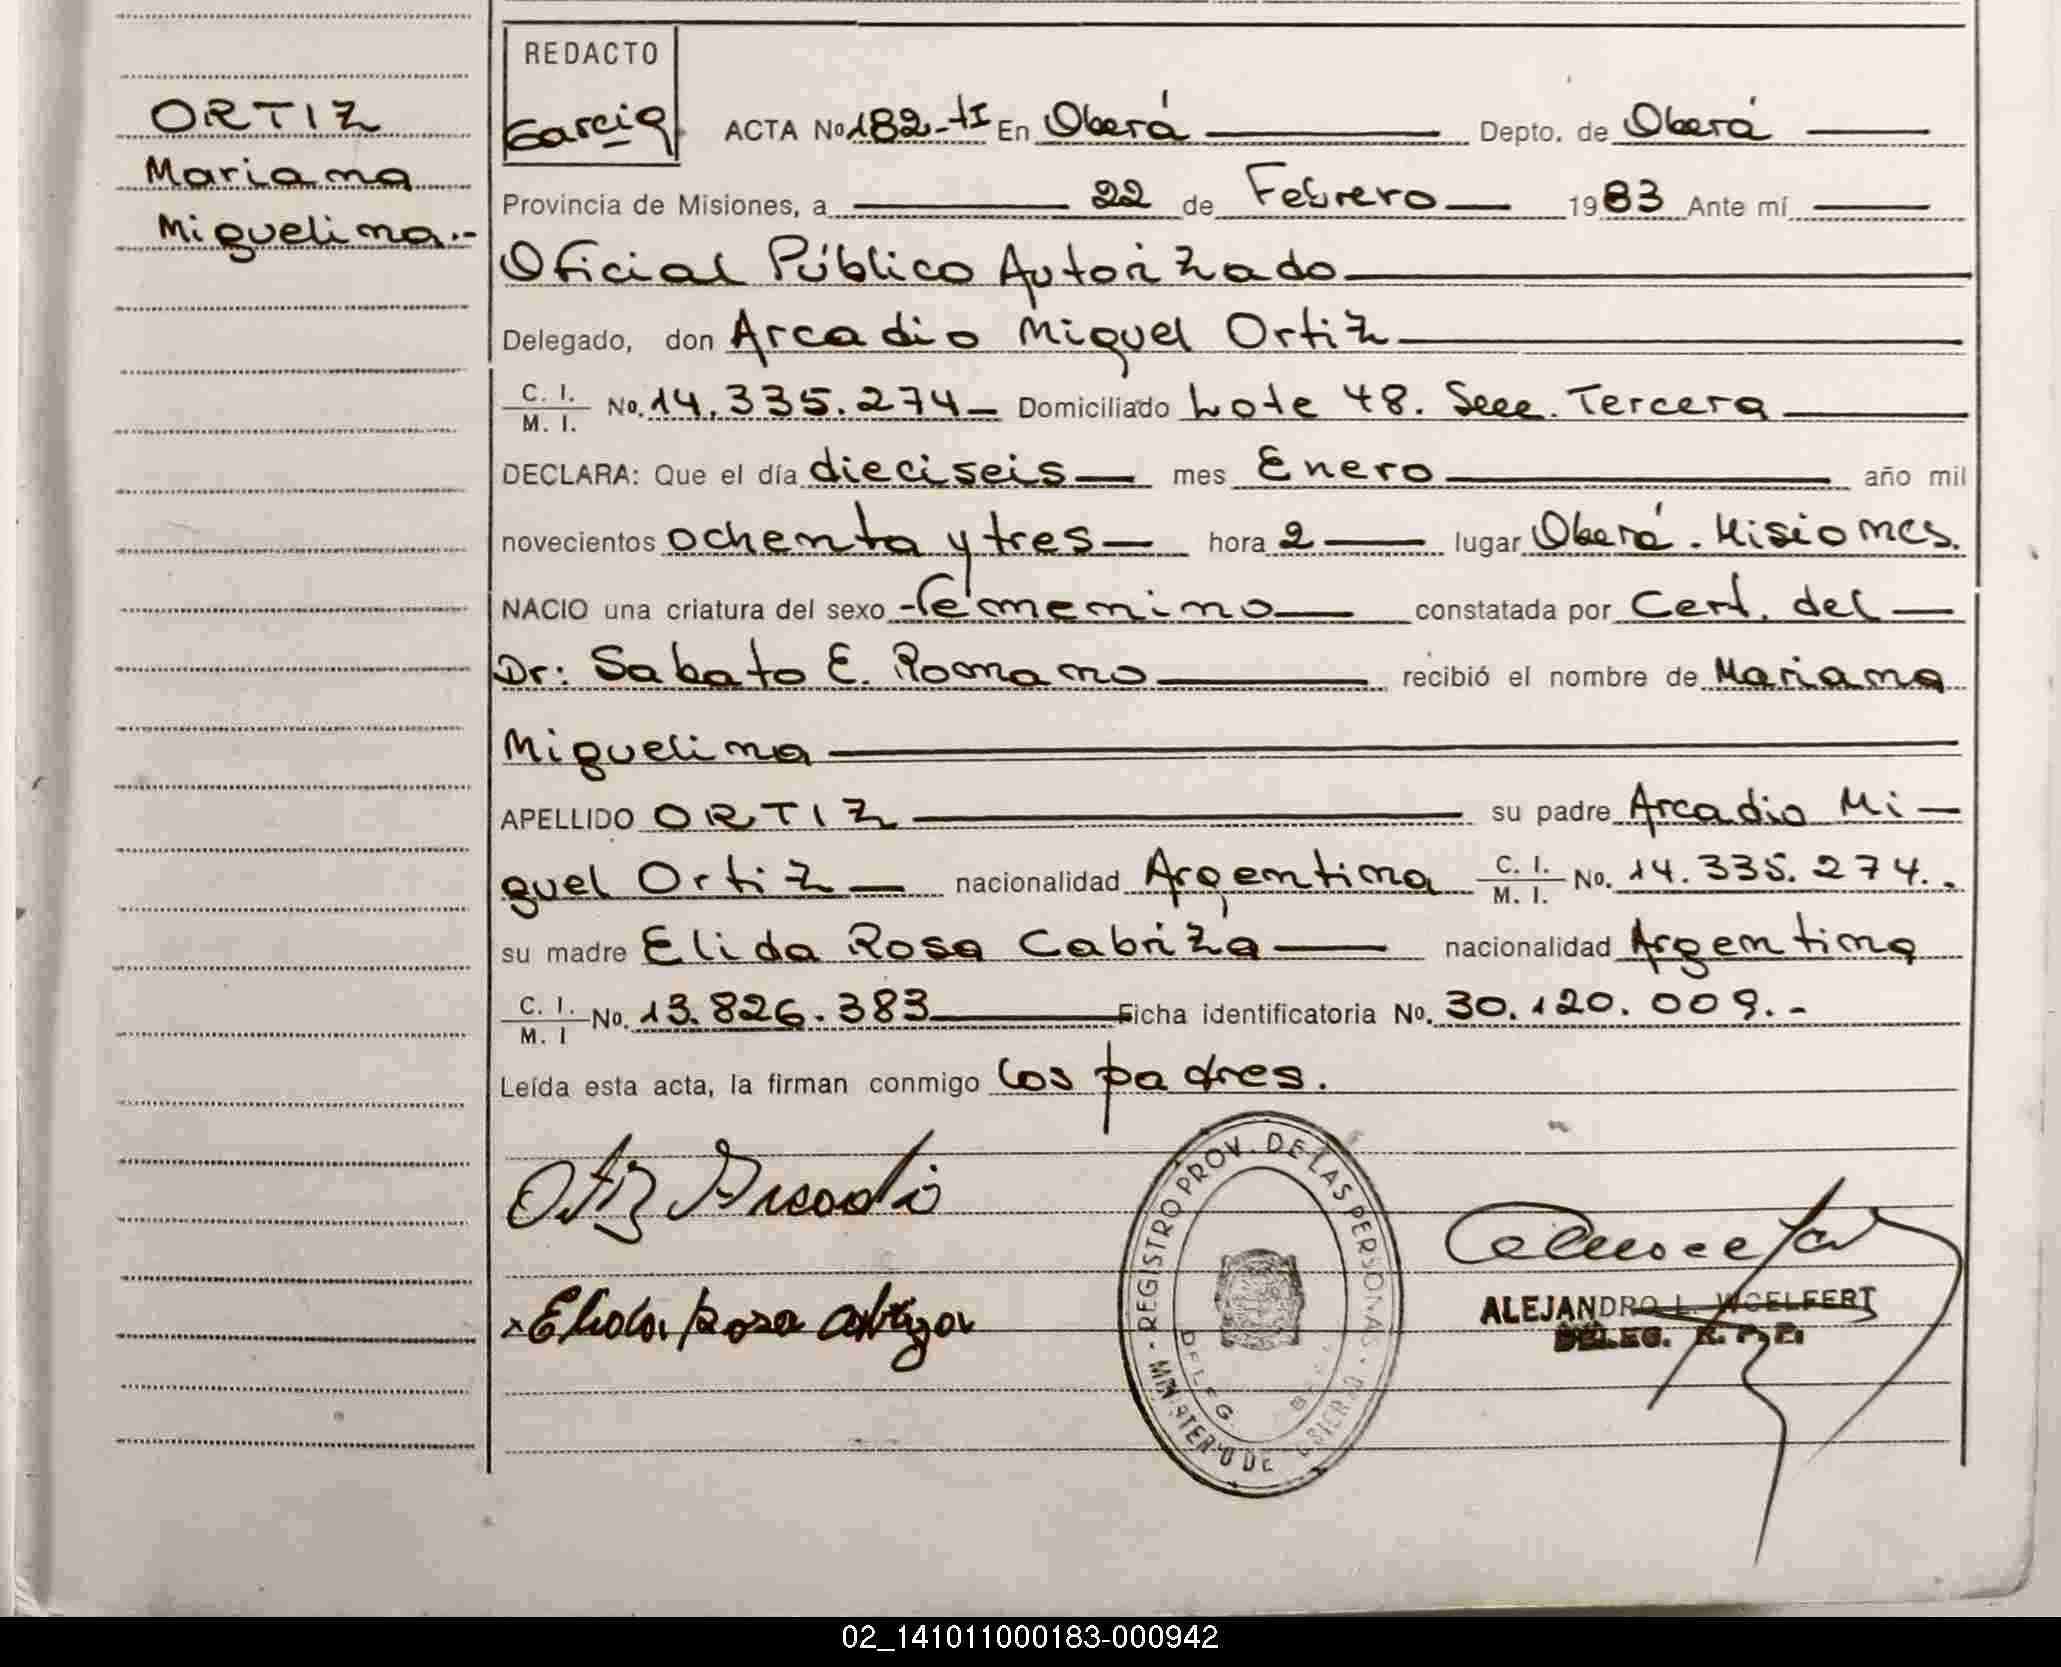 ORTIZ
Mariana
Miguelina.-
REDACTO
Garcia
ACTA No 182-tI En Oberá Depto. de Oberá
Provincia de Misiones, a 22 de Febrero 1983 Ante mí
Oficial Público Autorizado
Delegado, don Arcadio Miguel Ortiz
C. I. / M. I. No. 14.335.274 Domiciliado Lote 48. Secc. Tercera
DECLARA: Que el día dieciseis mes Enero año mil
novecientos ochenta y tres hora 2 lugar Oberá. Misiones.
NACIO una criatura del sexo femenino constatada por Cert. del
Dr: Sabato E. Romano recibió el nombre de Mariana
Miguelina
APELLIDO ORTIZ su padre Arcadio Mi-
guel Ortiz nacionalidad Argentina C. I. / M. I. No. 14.335.274.
su madre Elida Rosa Cabriza nacionalidad Argentina
C. I. / M. I No. 13.826.383 Ficha identificatoria No. 30.120.009.-
Leída esta acta, la firman conmigo los padres.
Ortiz Arcadio
x Elida Rosa
REGISTRO PROV. DE LAS PERSONAS
MINISTERIO DE GOBIERNO
DELEG.
ALEJANDRO L. WOELFERT
DELEG. R. P. P.
02_141011000183-000942